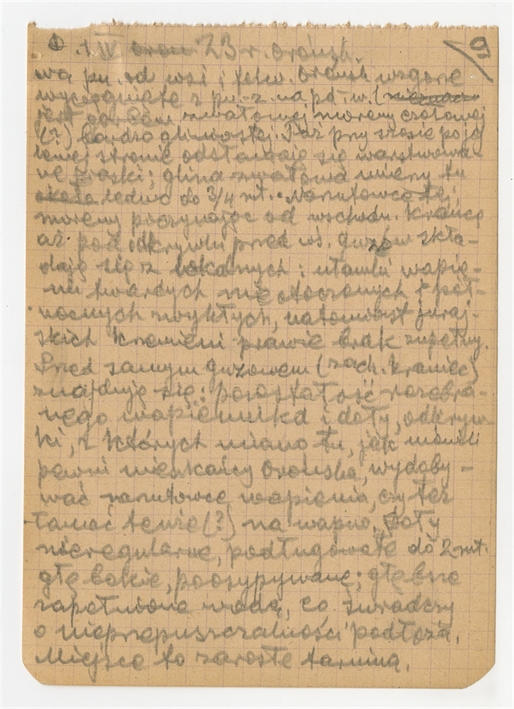 1 IV oron 23 r. orońsk. 9
wą pn. od wsi i folw. Orońsk wzgórze
wyciągnięte z pn.-z. na pd. w.
jest garbem zwałowej moreny czołowej
(?) bardzo gliniastej. Tuż przy szosie po
lewej stronie odsłaniają się warstwowa-
ne piaski; glina zwałowa mierzy tu
ledwo do 3/4 mt. Narzutowce tej
moreny począwszy od wschodn. krańca
aż pod odkrywki przed wś. Guzów skła-
dają się z lokalnych i ułamków wapie-
ni twardych nie otoczonych i pół-
nocnych zwykłych, natomiast juraj-
skich krzemieni prawie brak zupełny.
Przed samym Guzowem (zach. kraniec)
znajdują się: pozostałość rozebra-
nego wapiennika i doły, odkryw-
ki, z których miano tu, jak mówili
pewni mieszkańcy Orońska, wydoby-
wać narzutowce wapienia, czy też
łamać tenże (?) na wapno. Doły
nieregularne, podługowate do 2 mt.
głębokie, poosypywane; głębsze
zapełnione wodą, co świadczy
o nieprzepuszczalności podłoża.
Miejsce to zarosłe tarniną.